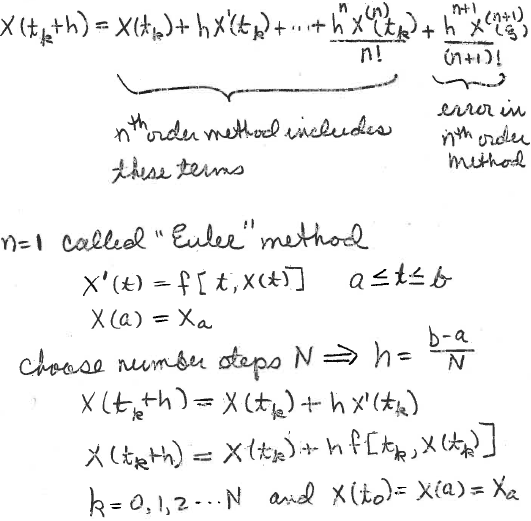 X(t_k+h) = X(t_k) + hX'(t_k) + ... + h^n X^(n)(t_k)/n! + h^(n+1) X^(n+1)(ξ)/(n+1)!
n^th order method includes these terms
error in n^th order method
n=1 called "Euler" method
X'(t) = f[t, X(t)]   a ≤ t ≤ b
X(a) = X_a
choose number steps N ⇒ h = (b-a)/N
X(t_k+h) = X(t_k) + hX'(t_k)
X(t_k+h) = X(t_k) + hf[t_k, X(t_k)]
k = 0, 1, 2 ... N and X(t_0) = X(a) = X_a